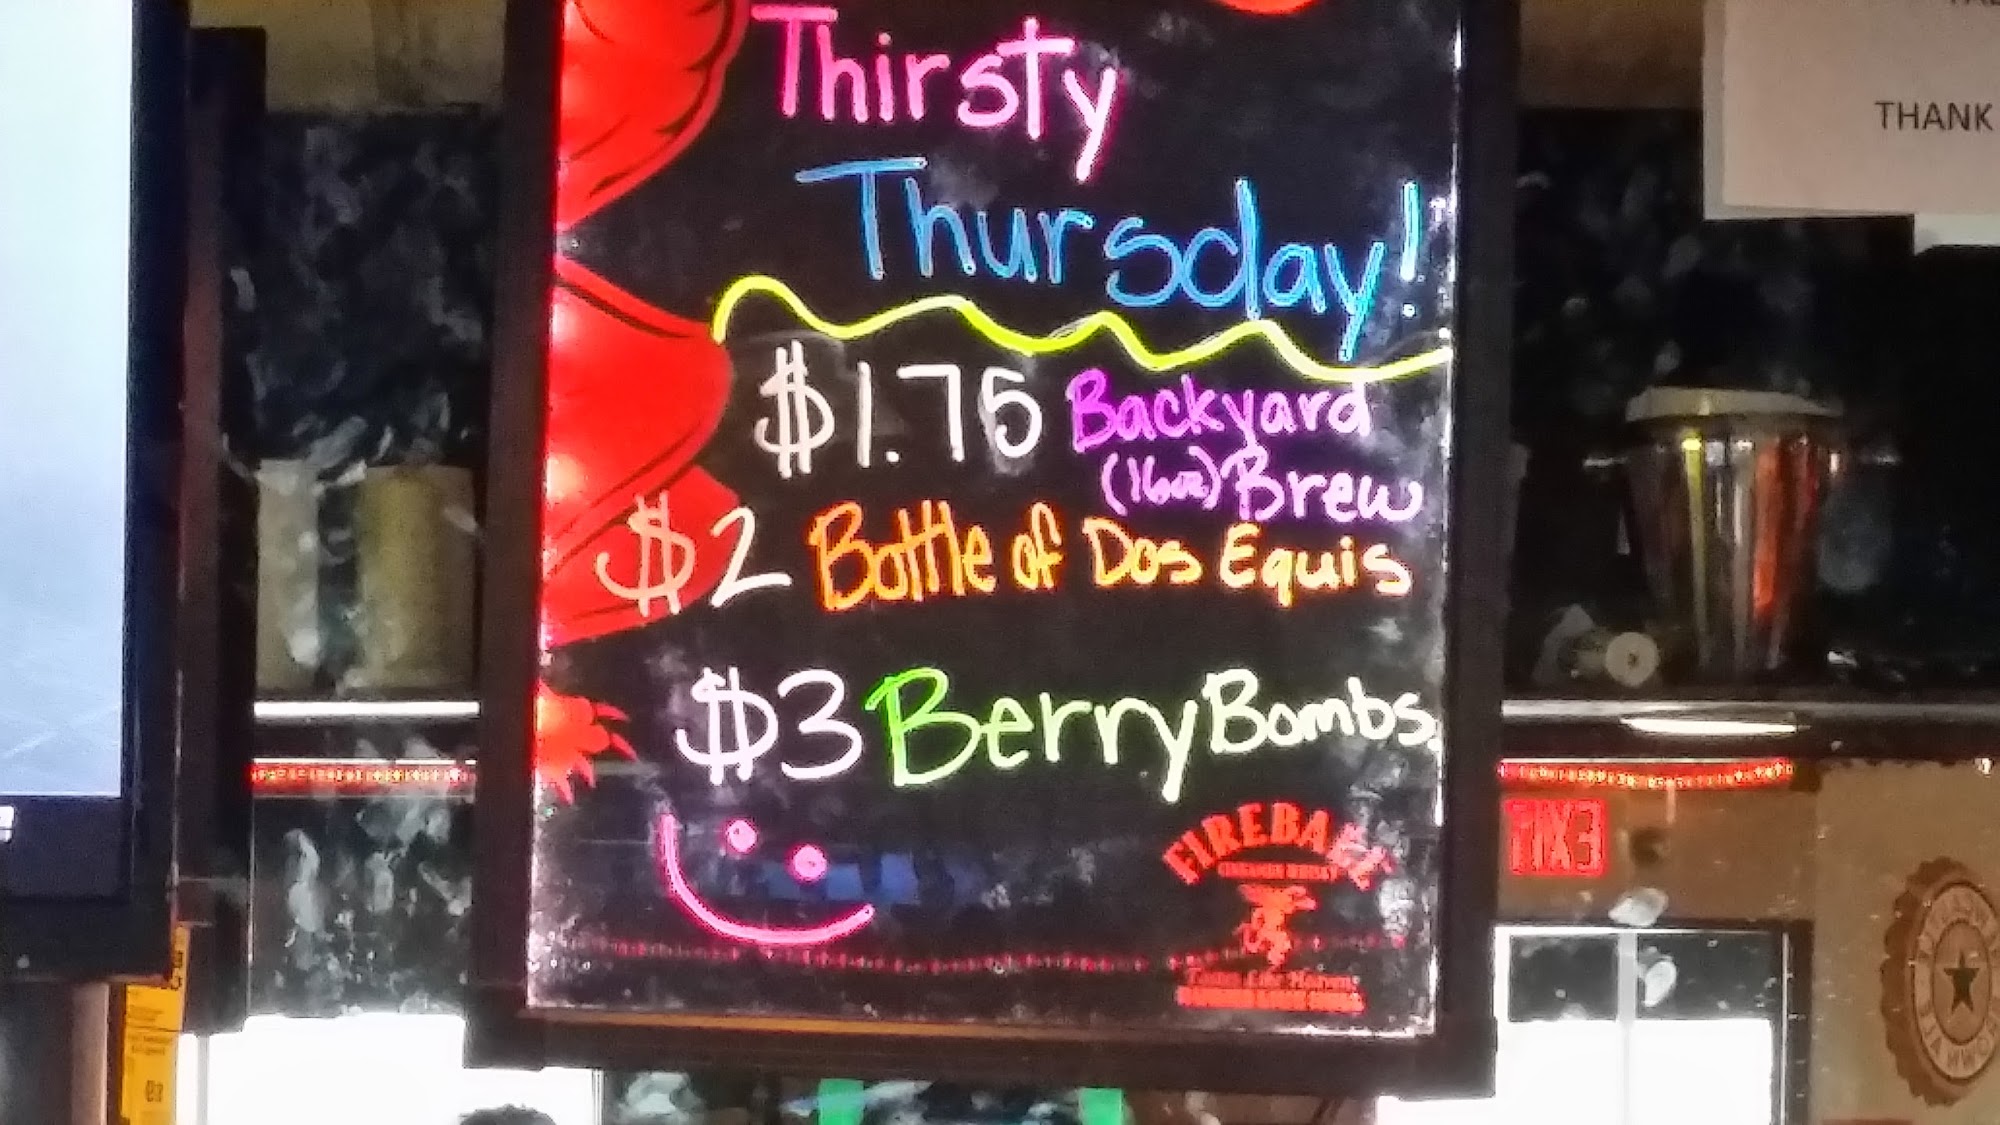 Thirsty
Thursday!
$1.75 Backyard
(16oz) Brew
$2 Bottle of Dos Equis
$3 Berry Bombs.
FIREBALL
THANK
EXIT